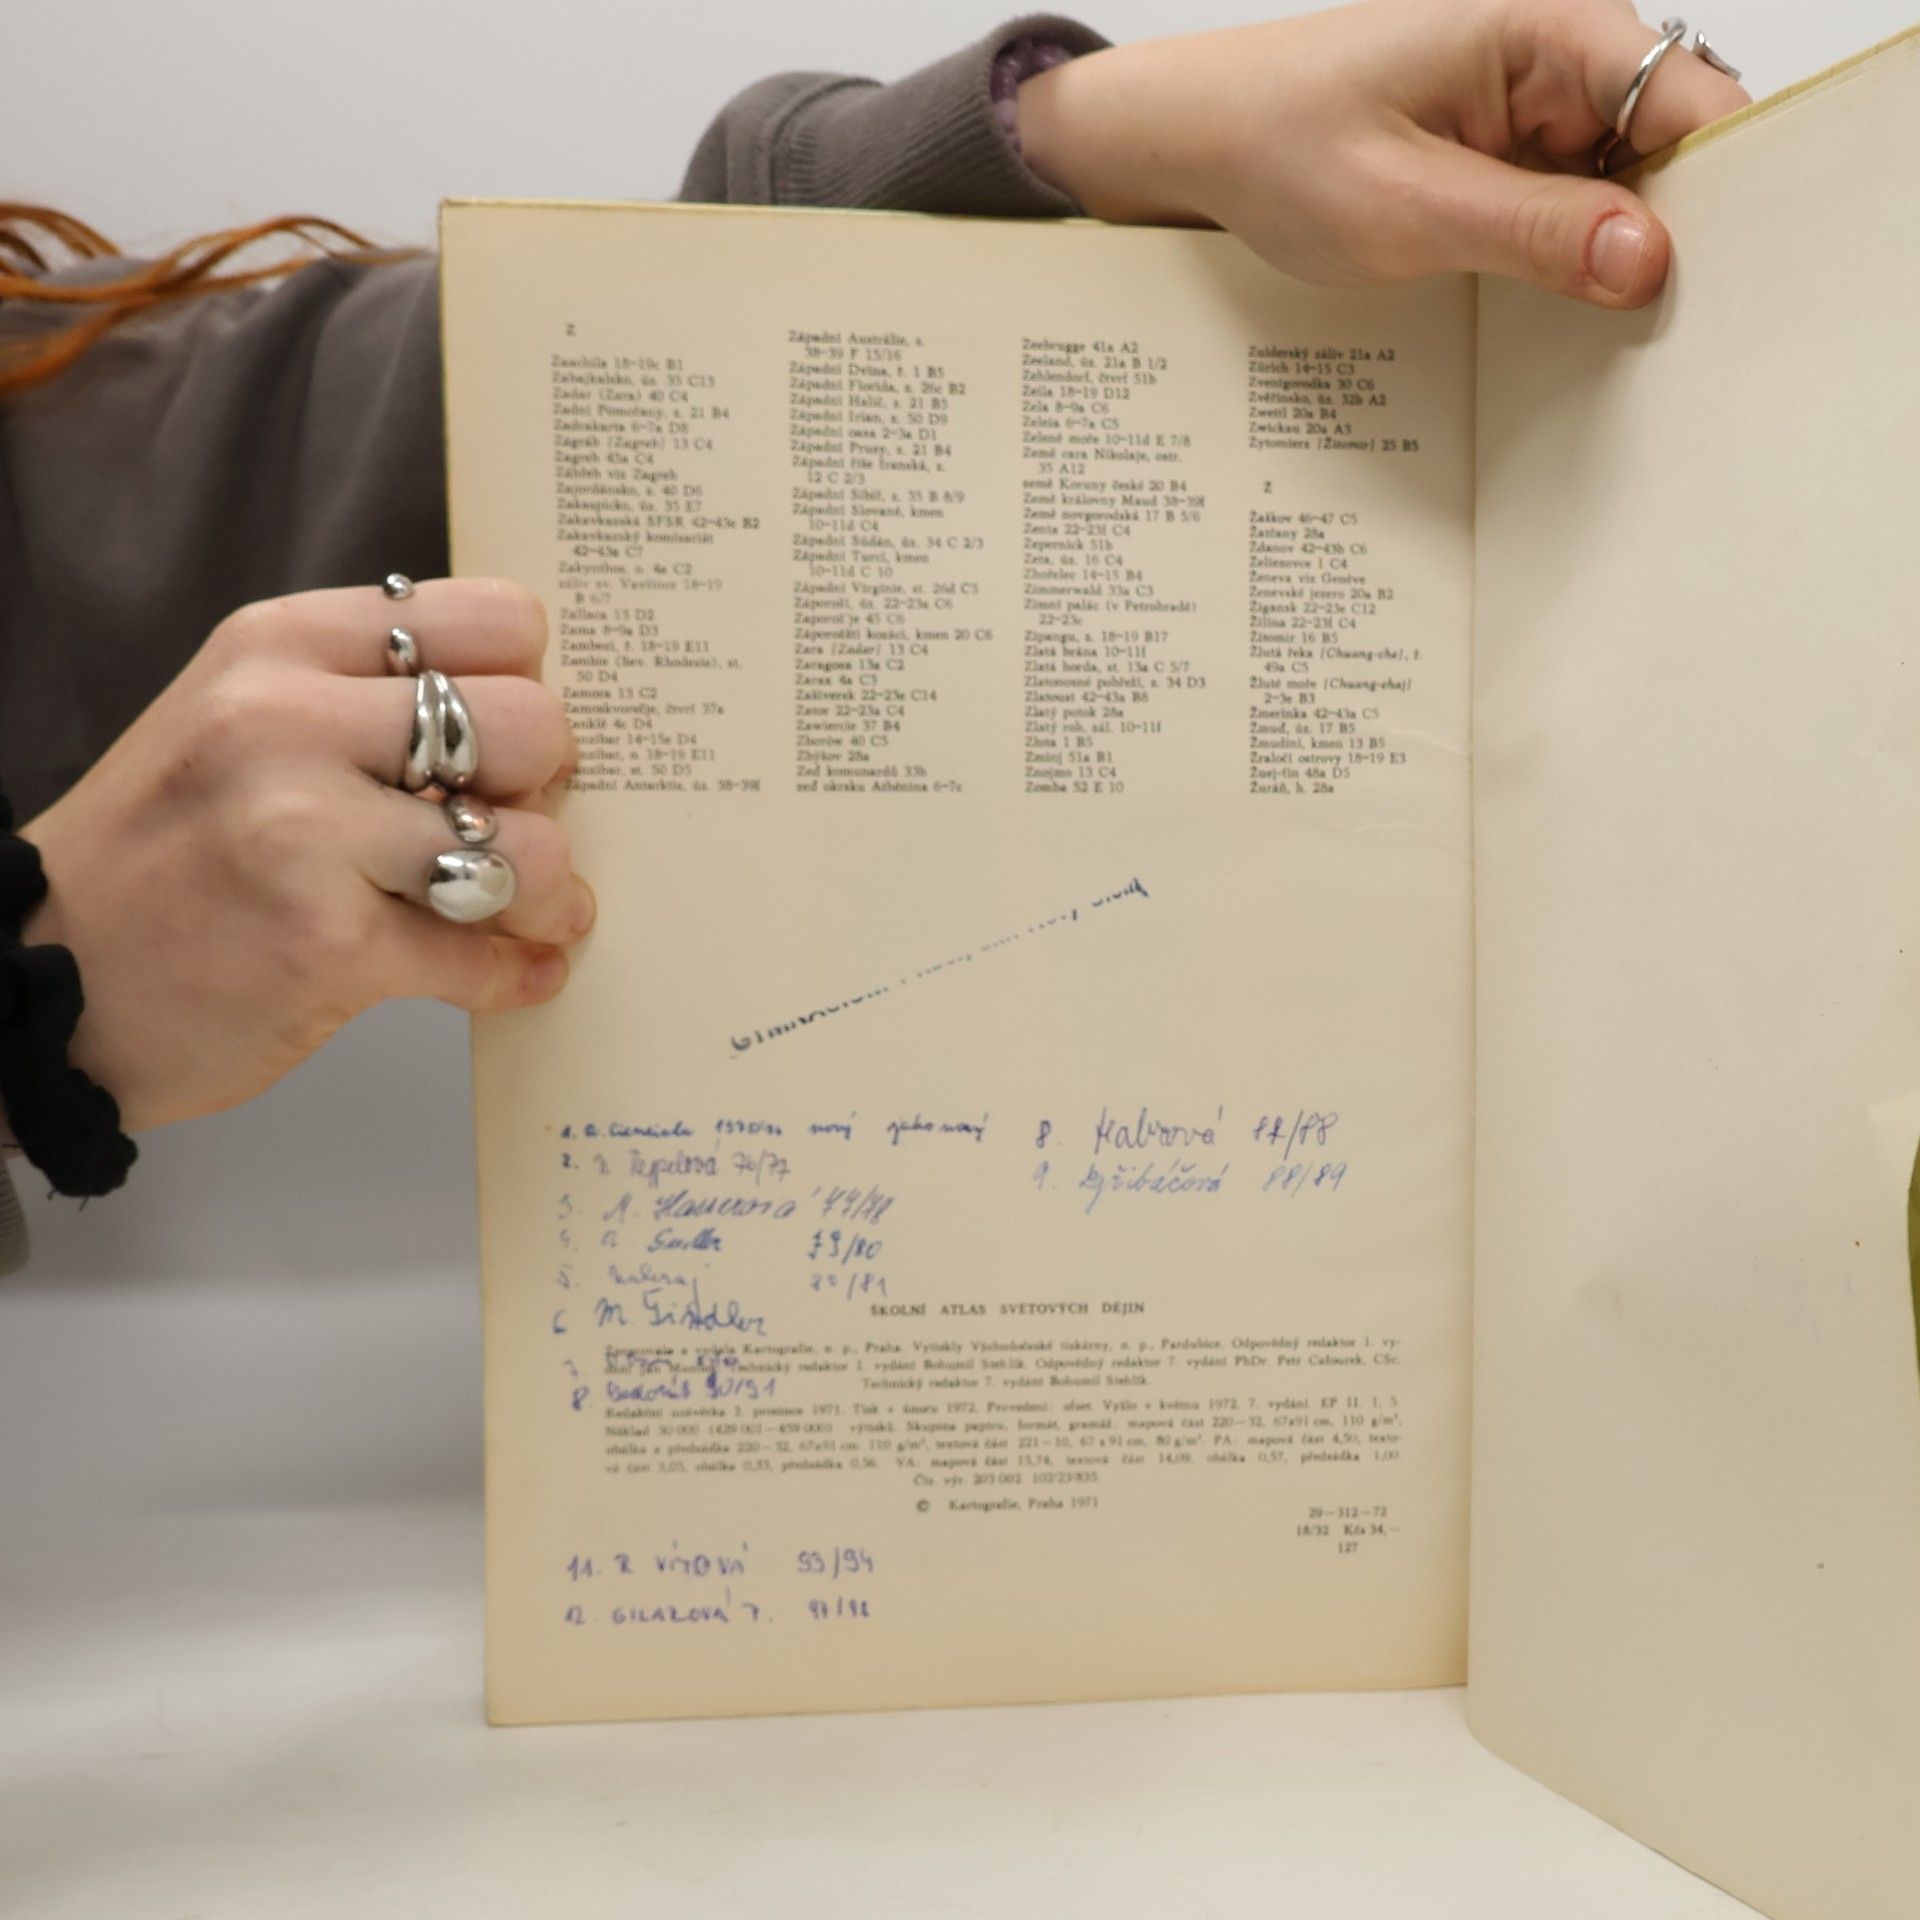 Z
Zaachila 18-19c B1
Zabajkalsko, úz. 35 C13
Zadar (Zara) 40 C4
Zadní Pomořany, z. 21 B4
Zadrakarta 6-7a D8
Zágráb [Zagreb] 13 C4
Zagreb 45a C4
Záhřeb viz Zagreb
Zajordánsko, z. 40 D6
Zakaspicko, úz. 35 E7
Zakavkazská SFSR 42-43e B2
Zakavkazský komisariát
42-43a C7
Zakynthos, n. 4a C2
záliv sv. Vavřince 18-19
B 6/7
Zallaca 13 D2
Zama 8-9a D3
Zambezi, ř. 18-19 E11
Zambie (Sev. Rhodesie), st.
50 D4
Zamora 13 C2
Zamoskvorečje, čtvrť 37a
Zanklé 4c D4
nzibar 14-15e D4
nzibar, n. 18-19 E11
nzibar, st. 50 D5
Západní Antarktis, úz. 38-39f
Západní Austrálie, z.
38-39 F 15/16
Západní Dvina, ř. 1 B5
Západní Florida, z. 26c B2
Západní Halič, z. 21 B5
Západní Irian, z. 50 D9
Západní oasa 2-3a D1
Západní Prusy, z. 21 B4
Západní říše franská, z.
12 C 2/3
Západní Sibiř, z. 35 B 8/9
Západní Slované, kmen
10-11d C4
Západní Súdán, úz. 34 C 2/3
Západní Turci, kmen
10-11d C 10
Západní Virginie, st. 26d C5
Záporoží, úz. 22-23a C6
Zaporož'je 45 C6
Záporožští kozáci, kmen 20 C6
Zara [Zadar] 13 C4
Zaragoza 13a C2
Zarax 4a C3
Zašiversk 22-23e C14
Zator 22-23a C4
Zawiercie 37 B4
Zborów 40 C5
Zbýšov 28a
Zeď komunardů 33b
zeď okrsku Athénina 6-7c
Zeebrugge 41a A2
Zeeland, úz. 21a B 1/2
Zehlendorf, čtvrť 51b
Zeila 18-19 D12
Zela 8-9a C6
Zeleia 6-7a C5
Zelené moře 10-11d E 7/8
Země cara Nikolaje, ostr.
35 A12
země Koruny české 20 B4
Země královny Maud 38-39f
Země novgorodská 17 B 5/6
Zenta 22-23f C4
Zepernick 51b
Zeta, úz. 16 C4
Zhořelec 14-15 B4
Zimmerwald 33a C3
Zimní palác (v Petrohradě)
22-23c
Zipangu, z. 18-19 B17
Zlatá brána 10-11f
Zlatá horda, st. 13a C 5/7
Zlatonosné pobřeží, z. 34 D3
Zlatoust 42-43a B8
Zlatý potok 28a
Zlatý roh, zál. 10-11f
Złota 1 B5
Žminj 51a B1
Znojmo 13 C4
Zomba 52 E 10
Zuiderský záliv 21a A2
Zürich 14-15 C3
Zvenigorodka 30 C6
Zvěřinsko, úz. 32b A2
Zwettl 20a B4
Zwickau 20a A3
Żytomierz [Žitomir] 25 B5
Ž
Žaškov 46-47 C5
Žatčany 28a
Ždanov 42-43b C6
Želiezovce 1 C4
Ženeva viz Genève
Ženevské jezero 20a B2
Žigansk 22-23e C12
Žilina 22-23f C4
Žitomir 16 B5
Žlutá řeka [Chuang-che], ř.
49a C5
Žluté moře [Chuang-chaj]
2-3e B3
Žmerinka 42-43a C5
Žmuď, úz. 17 B5
Žmudíni, kmen 13 B5
Žraločí ostrovy 18-19 E3
Žuej-ťin 48a D5
Žuráň, h. 28a
1. nový jako nový
2. 76/77
3. M. 77/78
4. 79/80
5. 80/81
6 M. Šindler
7.
8. 90/91
8. 87/88
9. 88/89
ŠKOLNÍ ATLAS SVĚTOVÝCH DĚJIN
Zpracovala a vydala Kartografie, n. p., Praha. Vytiskly Východočeské tiskárny, n. p., Pardubice. Odpovědný redaktor 1. vy-
dání Jan Technický redaktor 1. vydání Bohumil Stehlík. Odpovědný redaktor 7. vydání PhDr. Petr Cafourek, CSc.
Technický redaktor 7. vydání Bohumil Stehlík.
Redakční uzávěrka 3. prosince 1971. Tisk v únoru 1972. Provedení: ofset. Vyšlo v květnu 1972. 7. vydání. EP II. 1. 5.
Náklad 30 000 (429 001—459 000) výtisků. Skupina papíru, formát, gramáž: mapová část 220—32, 67x91 cm, 110 g/m²,
obálka a předsádka 220—32, 67x91 cm 110 g/m², textová část 221—10, 67 x 91 cm, 80 g/m². PA: mapová část 4,50, texto-
vá část 3,05, obálka 0,33, předsádka 0,56. VA: mapová část 15,74, textová část 14,09, obálka 0,57, předsádka 1,00.
Čís. výr. 203 002 102/23/835
© Kartografie, Praha 1971
29—312—72
18/32 Kčs 34,—
127
11. R VÍTOVÁ 93/94
12. GILAROVÁ 97/98